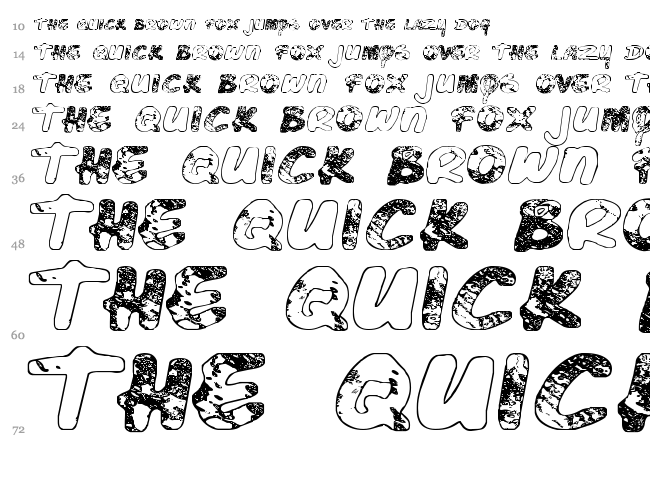 10 THE QUICK BROWN FOX JUMPS OVER THE LAZY DOG
14 THE QUICK BROWN FOX JUMPS OVER THE LAZY DO
18 THE QUICK BROWN FOX JUMPS OVER T
24 THE QUICK BROWN FOX JUMP
36 THE QUICK BROWN F
48 THE QUICK BRO
60 THE QUICK
72 THE QUICK